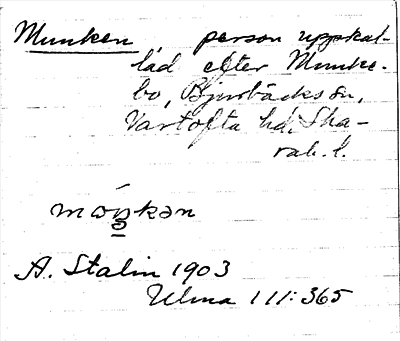 Munken, person uppkal-
lad efter Munke-
bo, Bjurbäcks sn,
Vartofta hd, Ska-
rab. l.
A. Stalin 1903
Ulma 111:365